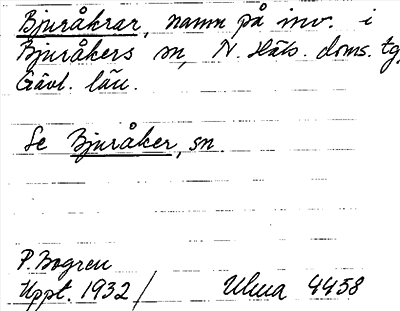 Bjuråkrar, namn på inv. i
Bjuråkers sn, N. Häls. doms. tg,
Gävl. län.
Se Bjuråker, sn
P. Bogren
Uppt. 1932 / Ulma 4458